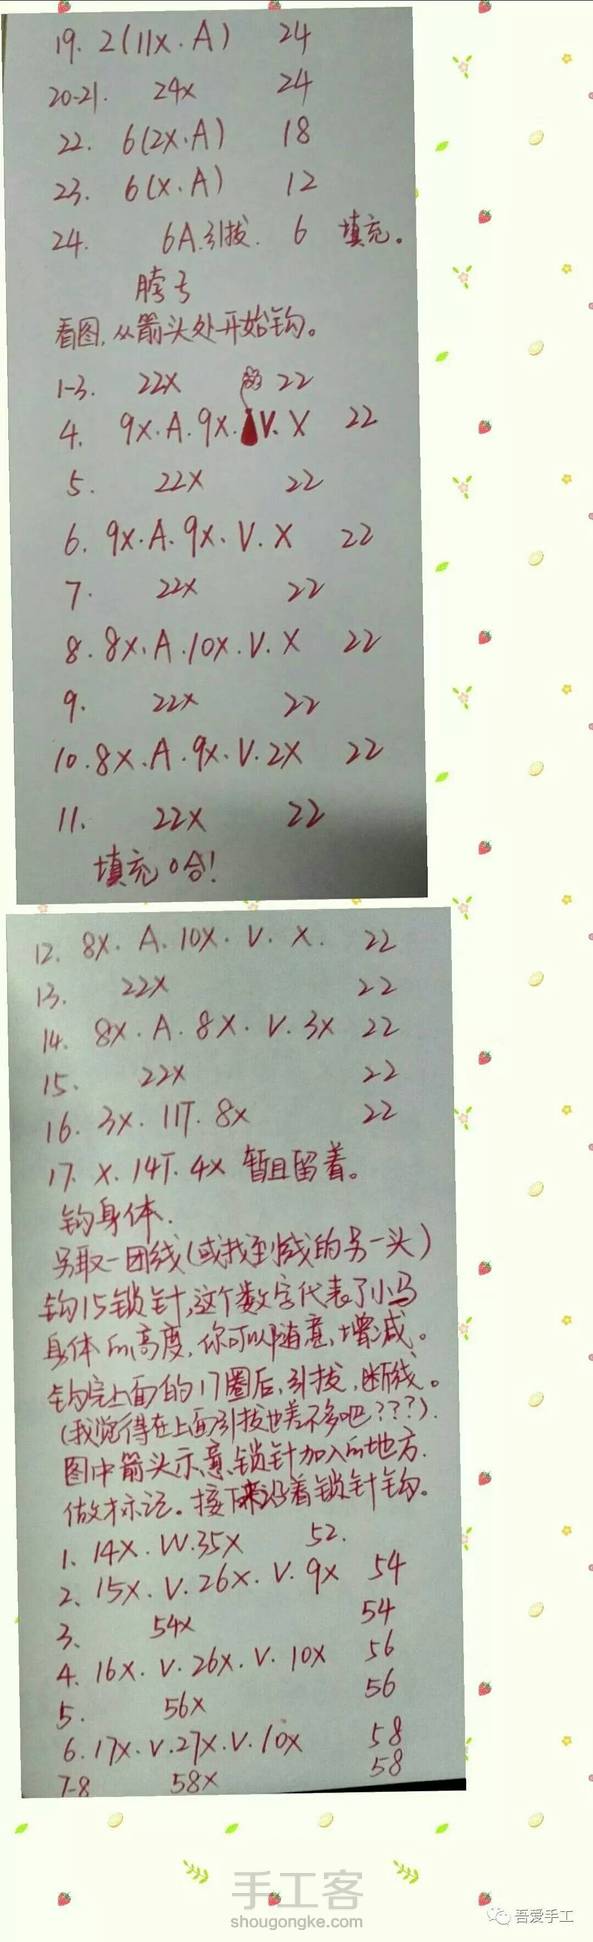 19. 2(11X.A) 24
20-21. 24X 24
22. 6(2X.A) 18
23. 6(X.A) 12
24. 6A.引拔. 6 填充。
脖子
看图,从箭头处开始钩。
1-3. 22X 22
4. 9X.A.9X.V.X 22
5. 22X 22
6. 9X.A.9X.V.X 22
7. 22X 22
8. 8X.A.10X.V.X 22
9. 22X 22
10. 8X.A.9X.V.2X 22
11. 22X 22
填充哈!
12. 8X.A.10X.V.X. 22
13. 22X 22
14. 8X.A.8X.V.3X 22
15. 22X 22
16. 3X.11T.8X 22
17. X.14T.4X 暂且留着。
钩身体.
另取一团线(或找到线的另一头)
钩15锁针,这个数字代表了小马
身体的高度,你可以随意增减。
钩完上面的17圈后,引拔,断线。
(我觉得在上面引拔也差不多吧???).
图中箭头示意锁针加入的地方.
做标记。接下来沿着锁针钩。
1. 14X.W.35X 52.
2. 15X.V.26X.V.9X 54
3. 54X 54
4. 16X.V.26X.V.10X 56
5. 56X 56
6. 17X.V.27X.V.10X 58
7-8 58X 58
手工客
shougongke.com
吾爱手工